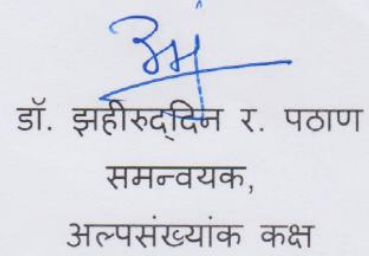 डॉ. झहीरुद्दिन र. पठाण
समन्वयक,
अल्पसंख्यांक कक्ष